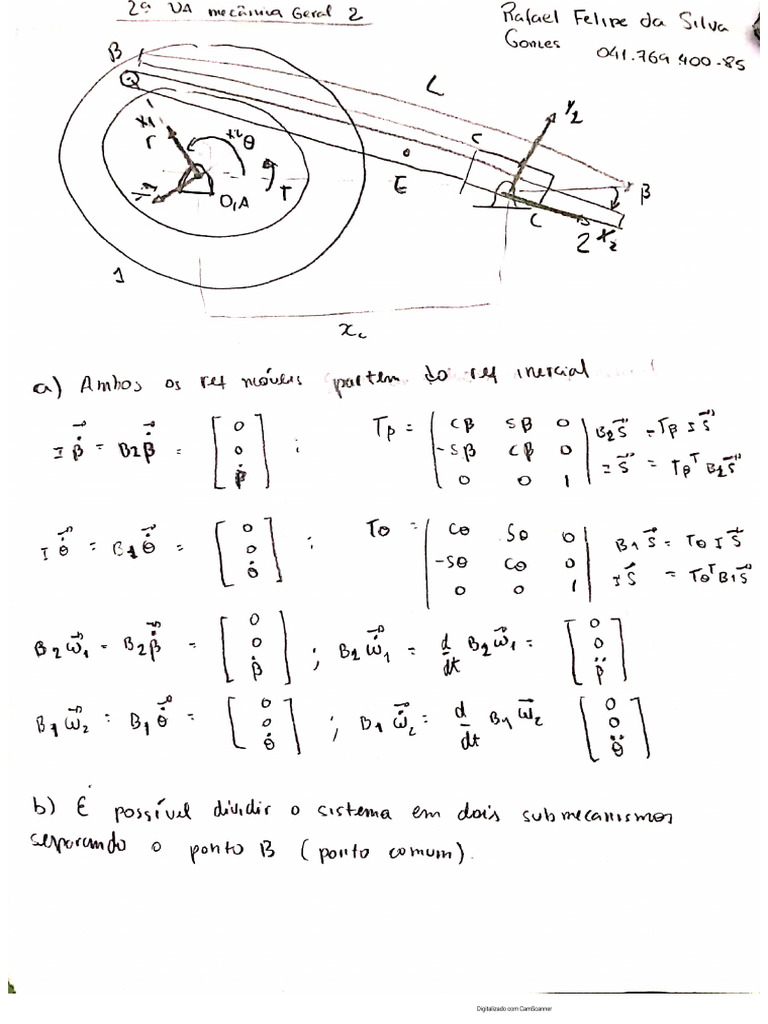 2ª VA mecânica Geral 2
Rafael Felipe da Silva
Gomes 041.769.400-85
B
L
Y2
X1
r
θ
C
E
T
O,A
β
C
2
X2
1
x_c
a) Ambos os ref móveis partem do ref inercial
I β̇ = B2 β̇ = [0 0 β̇] ; Tβ = |Cβ Sβ 0; -Sβ Cβ 0; 0 0 1| B2 s = Tβ I s
I s = Tβ^T B2 s
I θ̇ = B1 θ̇ = [0 0 θ̇] ; Tθ = |Cθ Sθ 0; -Sθ Cθ 0; 0 0 1| B1 s = Tθ I s
I s = Tθ^T B1 s
B2 ω1 = B2 β̇ = [0 0 β̇] ; B2 ω̇1 = d/dt B2 ω1 = [0 0 β̈]
B1 ω2 = B1 θ̇ = [0 0 θ̇] ; B1 ω̇2 = d/dt B1 ω2 [0 0 θ̈]
b) É possível dividir o sistema em dois submecanismos
separando o ponto B (ponto comum).
Digitalizado com CamScanner